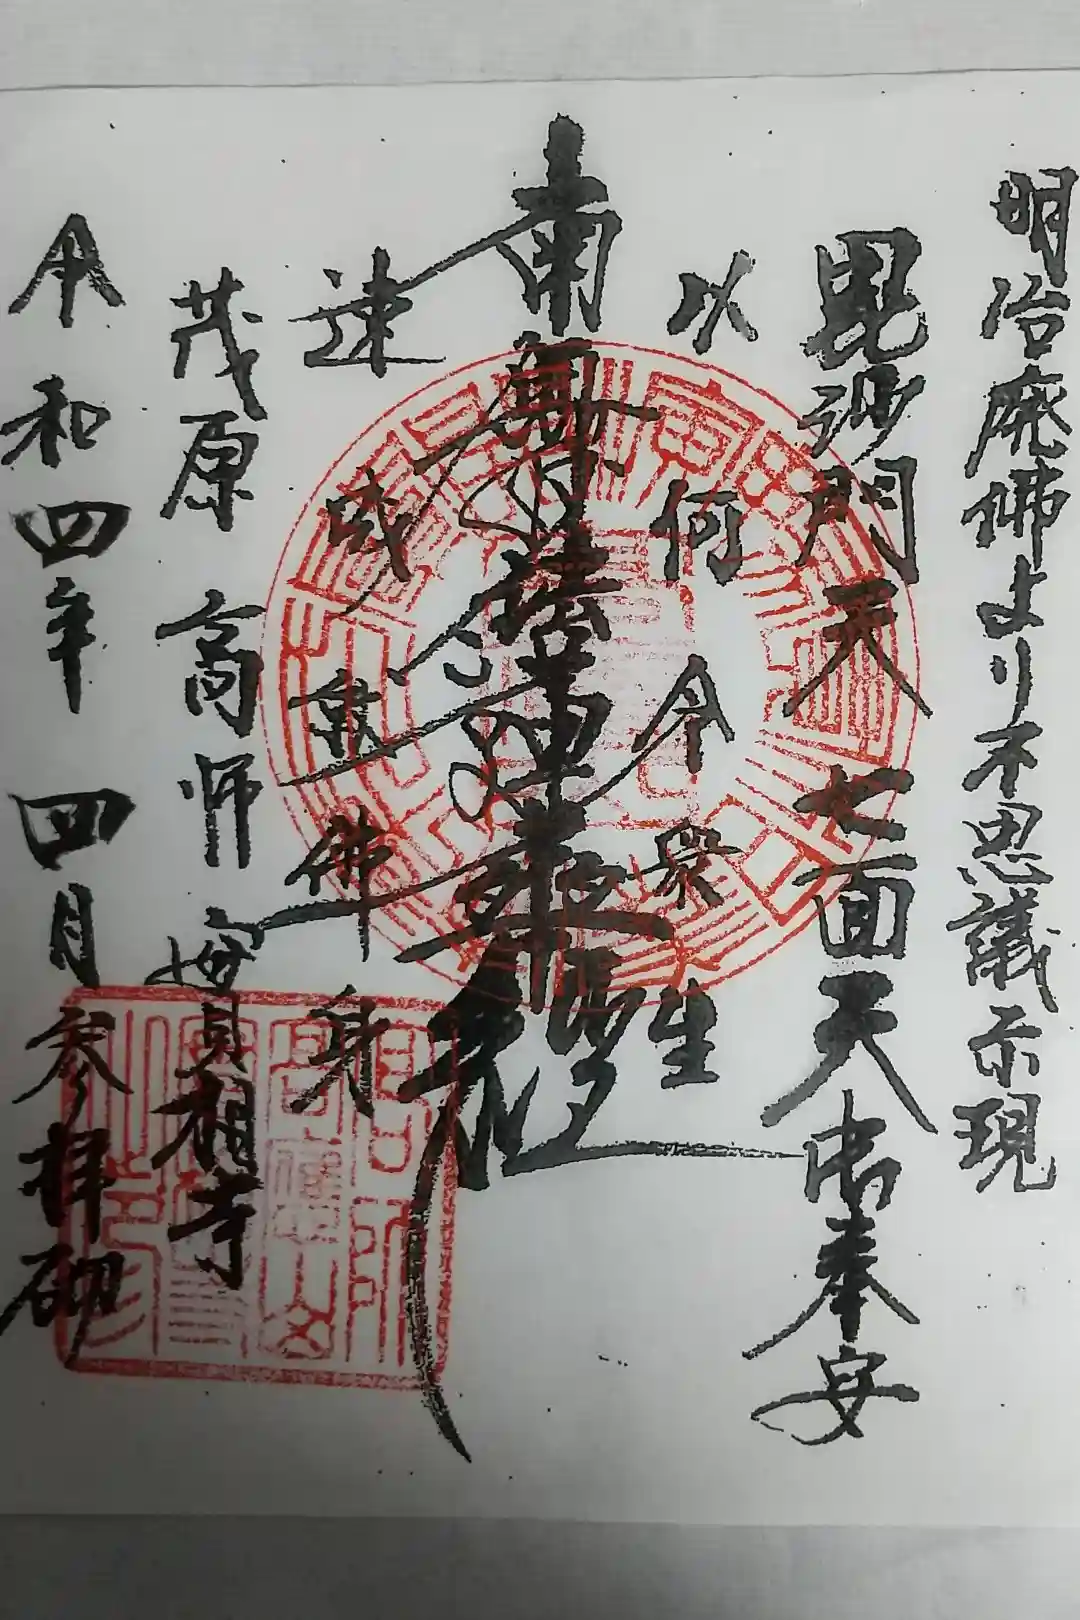 明治廃佛より不思議示現
毘沙門天 七面天 御奉安
以何令衆生
南無妙法蓮華経
速成就佛身
茂原 高師 實相寺
令和四年 四月参拝砌